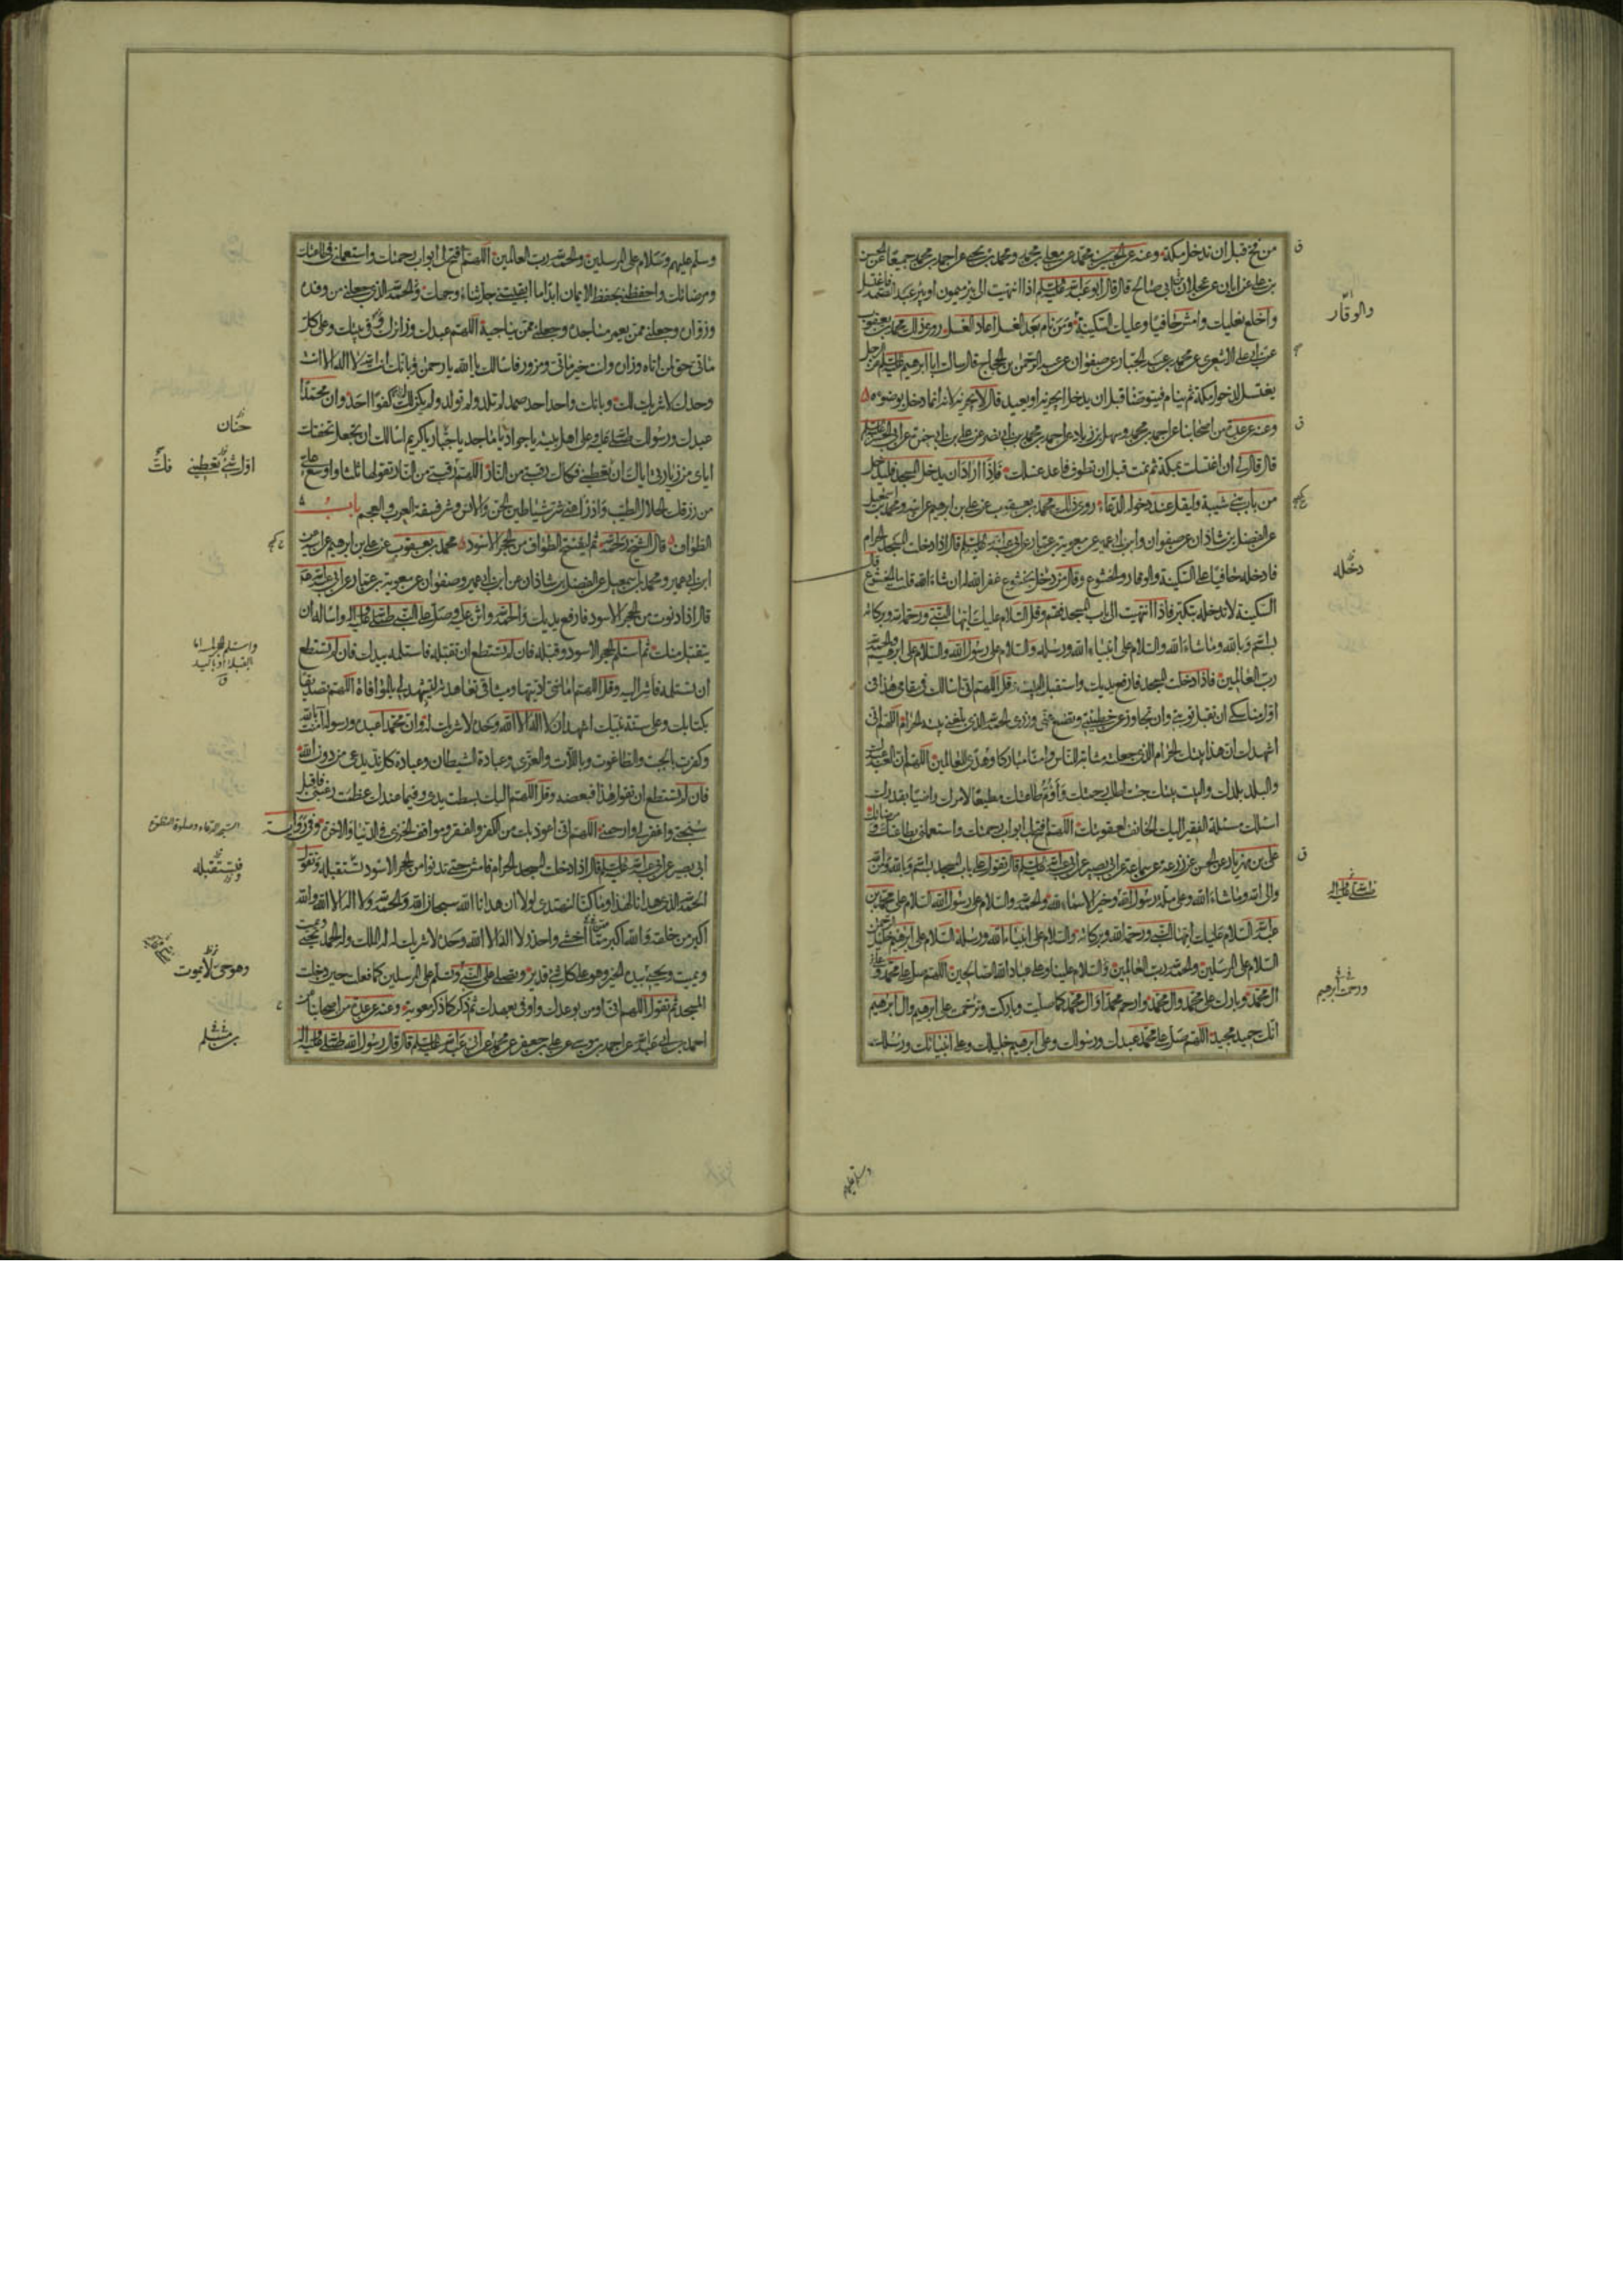 من فخ قبل ان تدخل مكة وعنه عن الحسين بن محمد عن معلى بن محمد ومحمد بن يحيى عن احمد بن محمد جميعا عن الحسن
بن علي عن ابان عن عجلان ابي صالح قال قال ابو عبد الله عليه السلام اذا انتهيت الى بئر ميمون او بئر عبد الصمد فاغتسل
واخلع نعليك وامش حافيا وعليك السكينة ومن نام بعد الغسل اعاد الغسل روى ذلك محمد بن يعقوب
والوقار
عن ابي علي الاشعري عن محمد بن عبد الجبار عن صفوان عن عبد الرحمن بن الحجاج قال سالت ابا ابرهيم عليه السلم عن الرجل
يغتسل لدخول مكة ثم ينام فيتوضا قبل ان يدخل ايجزيه او يعيد قال لا يجزيه لانه انما دخل بوضوء
وعنه عن عدة من اصحابنا عن احمد بن محمد وسهل بن زياد عن احمد بن محمد بن ابي نصر عن علي بن ابي حمزة عن ابي الحسن عليه السلم
قال قال لي ان اغتسلت بمكة ثم نمت قبل ان تطوف فاعد غسلك فاذا اراد ان يدخل المسجد فليدخل
من باب بني شيبة وليقل عند دخوله الدعاء روى ذلك محمد بن يعقوب عن علي بن ابرهيم عن ابيه ومحمد بن اسمعيل
عن الفضل بن شاذان عن صفوان وابن ابي عمير عن معوية بن عمار عن ابي عبد الله عليه السلم قال اذا دخلت المسجد الحرام
فادخله حافيا على السكينة والوقار والخشوع وقال من دخل بخشوع غفر الله له ان شاء الله قلت ما الخشوع قال
دخله
السكينة لا تدخله بتكبر فاذا انتهيت الى باب المسجد فقم وقل السلام عليك ايها النبي ورحمة الله وبركاته
بسم الله وبالله وما شاء الله والسلام على انبياء الله ورسله والسلام على رسول الله والسلام على ابرهيم والحمد لله
رب العالمين فاذا دخلت المسجد فارفع يديك واستقبل البيت وقل اللهم اني اسالك في مقامي هذا في
اول مناسكي ان تقبل توبتي وان تجاوز عن خطيئتي وتضع عني وزري الحمد لله الذي بلغني بيته الحرام اللهم اني
اشهدك ان هذا بيتك الحرام الذي جعلته مثابة للناس وامنا مباركا وهدى للعالمين اللهم ان العبد عبدك
والبلد بلدك والبيت بيتك جئت اطلب رحمتك واؤم طاعتك مطيعا لامرك راضيا بقدرك
اسئلك مسئلة الفقير اليك الخائف لعقوبتك اللهم افتح لي ابواب رحمتك واستعملني بطاعتك ومرضاتك
علي بن مهزيار عن الحسن عن زرعة عن سماعة عن ابي بصير عن ابي عبد الله عليه السلم قال تقول على باب المسجد بسم الله وبالله ومن الله
والى الله وما شاء الله وعلى ملة رسول الله وخير الاسماء لله والحمد لله والسلام على رسول الله السلام على محمد بن
عبد الله السلام عليك ايها النبي ورحمة الله وبركاته والسلام على انبياء الله ورسله السلام على ابرهيم خليل الرحمن
السلام على المرسلين والحمد لله رب العالمين والسلام علينا وعلى عباد الله الصالحين اللهم صل على محمد وعلى
ال محمد وبارك على محمد وال محمد وارحم محمدا وال محمد كما صليت وباركت وترحمت على ابرهيم وال ابرهيم
ورحمت ابرهيم
انك حميد مجيد اللهم صل على محمد عبدك ورسولك وعلى ابرهيم خليلك وعلى انبيائك ورسلك
وسلم عليهم
وسلم عليهم وسلام على المرسلين والحمد لله رب العالمين اللهم افتح لي ابواب رحمتك واستعملني في طاعتك
ومرضاتك واحفظني بحفظ الايمان ابدا ما ابقيتني جل ثناء وجهك والحمد لله الذي جعلني من وفده
وزواره وجعلني ممن يعمر مساجده وجعلني ممن يناجيه اللهم عبدك وزائرك وفي بيتك وعلى كل
ماتي حق لمن اتاه وزاره وانت خير ماتي ومزور فاسالك يا الله يا رحمن وبانك انت الله لا اله الا انت
وحدك لا شريك لك وبانك واحد احد صمد لم تلد ولم تولد ولم يكن لك كفوا احد وان محمدا
عبدك ورسولك صلى الله عليه وعلى اهل بيته يا جواد يا ماجد يا جبار يا كريم اسالك ان تجعل تحفتك
حنان
اياي من زيارتي اياك ان تعطيني فكاك رقبتي من النار اللهم فك رقبتي من النار تقولها ثلثا واوسع علي
اول شئ تعطيني
من رزقك الحلال الطيب وادرا عني شر شياطين الجن والانس وشر فسقة العرب والعجم باب
الطواف قال الشيخ رحمه الله ثم ليفتتح الطواف من الحجر الاسود محمد بن يعقوب عن علي بن ابرهيم عن ابيه عن
ابن ابي عمير ومحمد بن اسمعيل عن الفضل بن شاذان عن ابن ابي عمير وصفوان عن معوية بن عمار عن ابي عبد الله
قال اذا دنوت من الحجر الاسود فارفع يديك واحمد الله واثن عليه وصل على النبي صلى الله عليه واله واسال الله ان
يتقبل منك ثم استلم الحجر الاسود وقبله فان لم تستطع ان تقبله فاستلمه بيدك فان لم تستطع
ان تستلمه فاشر اليه وقل اللهم امانتي اديتها وميثاقي تعاهدته لتشهد لي بالموافاة اللهم تصديقا
بكتابك وعلى سنة نبيك اشهد ان لا اله الا الله وحده لا شريك له وان محمدا عبده ورسوله امنت بالله
وكفرت بالجبت والطاغوت وباللات والعزى وعبادة الشيطان وعبادة كل ند يدعى من دون الله
فان لم تستطع ان تقول هذا فبعضه وقل اللهم اليك بسطت يدي وفيما عندك عظمت رغبتي فاقبل
سبحتي واغفر لي وارحمني اللهم اني اعوذ بك من الكفر والفقر ومواقف الخزي في الدنيا والاخرة وفي رواية
ابي بصير عن ابي عبد الله عليه السلم قال اذا دخلت المسجد الحرام فامش حتى تدنو من الحجر الاسود تستقبله وتقول
فتستقبله
الحمد لله الذي هدانا لهذا وما كنا لنهتدي لولا ان هدانا الله سبحان الله والحمد لله ولا اله الا الله والله
اكبر من خلقه والله اكبر مما اخشى واحذر لا اله الا الله وحده لا شريك له له الملك وله الحمد يحيي
ويميت ويحيي بيده الخير وهو على كل شئ قدير وتصلي على النبي وتسلم على المرسلين كما فعلت حين دخلت
وهو حي لا يموت
المسجد ثم تقول اللهم اني اومن بوعدك واوفي بعهدك ثم ذكر كما ذكر معوية وعنه عن عدة من اصحابنا عن
احمد بن ابي عبد الله عن احمد بن موسى عن علي بن جعفر عن محمد بن مسلم عن ابي عبد الله عليه السلم قال قال رسول الله صلى الله عليه واله
بن مسلم